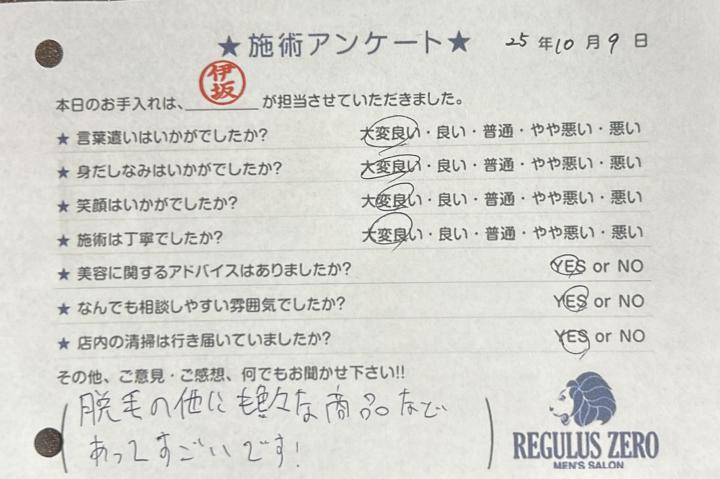 ★施術アンケート★ 25年10月9日
本日のお手入れは、伊坂が担当させていただきました。
★ 言葉遣いはいかがでしたか? 大変良い・良い・普通・やや悪い・悪い
★ 身だしなみはいかがでしたか? 大変良い・良い・普通・やや悪い・悪い
★ 笑顔はいかがでしたか? 大変良い・良い・普通・やや悪い・悪い
★ 施術は丁寧でしたか? 大変良い・良い・普通・やや悪い・悪い
★ 美容に関するアドバイスはありましたか? YES or NO
★ なんでも相談しやすい雰囲気でしたか? YES or NO
★ 店内の清掃は行き届いていましたか? YES or NO
その他、ご意見・ご感想、何でもお聞かせ下さい!!
脱毛の他にも様々な商品など
あってすごいです!
REGULUS ZERO
MEN'S SALON